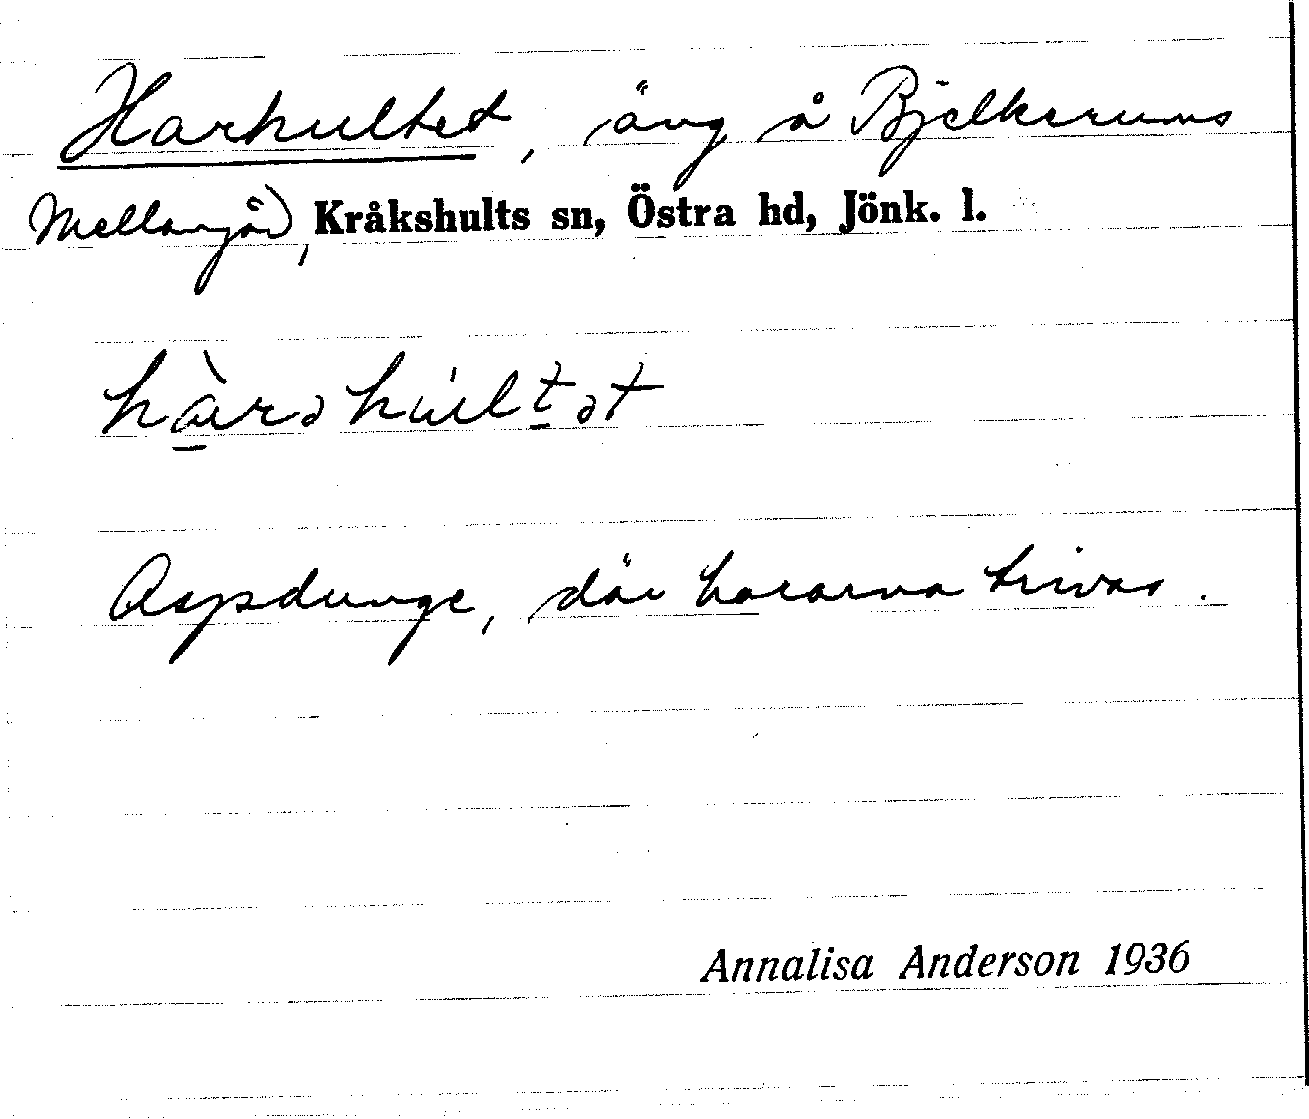 Harhultet, äng å Bjelkerums
Mellangård, Kråkshults sn, Östra hd, Jönk. l.
hàrəhúltət
Aspdunge, där hararna trivas.
Annalisa Anderson 1936